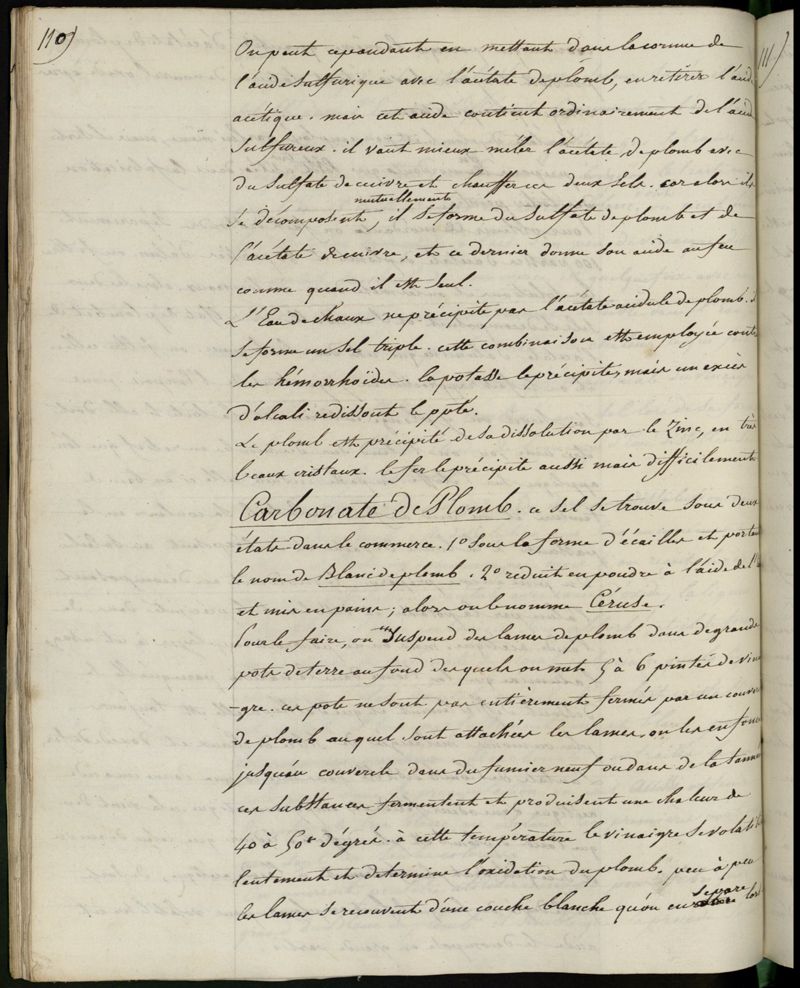 110)
111)
On peut cependant en mettant dans la cornue de
l'acide Sulfurique avec l'acétate de plomb, en retirer l'acid
acétique. mais cet acide contient ordinairement de l'acid
Sulfureux. il vaut mieux mêler l'acétate de plomb avec
du Sulfate de cuivre et chauffer ces deux Sels. car alors ils
mutuellement
Se décomposent, il Se forme du Sulfate de plomb et de
l'acétate de cuivre, et ce dernier donne Son acide au feu
comme quand il est Seul.
L'Eau de Chaux ne précipite pas l'acétate acidule de plomb. il
Se forme un Sel triple. cette combinaison est employée contre
les hémorrhoïdes. la potasse le précipite, mais un excès
d'alcali redissout le ppté.
Le plomb est précipité de Sa dissolution par le Zinc, en très
beaux cristaux. le fer le précipite aussi mais difficilement
Carbonate de Plomb. ce Sel Se trouve Sous deux
états dans le commerce. 1º Sous la forme d'écailles et portant
le nom de Blanc de plomb. 2º réduit en poudre à l'aide de l'
et mis en pains; alors on le nomme Céruse.
Pour le faire, on Suspend des lames de plomb dans de grands
pots de terre au fond desquels on met 5 à 6 pintes de vinai
-gre. ces pots ne Sont pas entièrement fermés par un couver
de plomb auquel Sont attachées les lames. on les enfonce
jusqu'au couvercle dans du fumier neuf ou dans de la tannée
ces Substances fermentent et produisent une chaleur de
40 à 50 dégrés. à cette température le vinaigre Se volatil
lentement et détermine l'oxidation du plomb. peu à peu
les lames Se recouvrent d'une couche blanche qu'on en Sépare